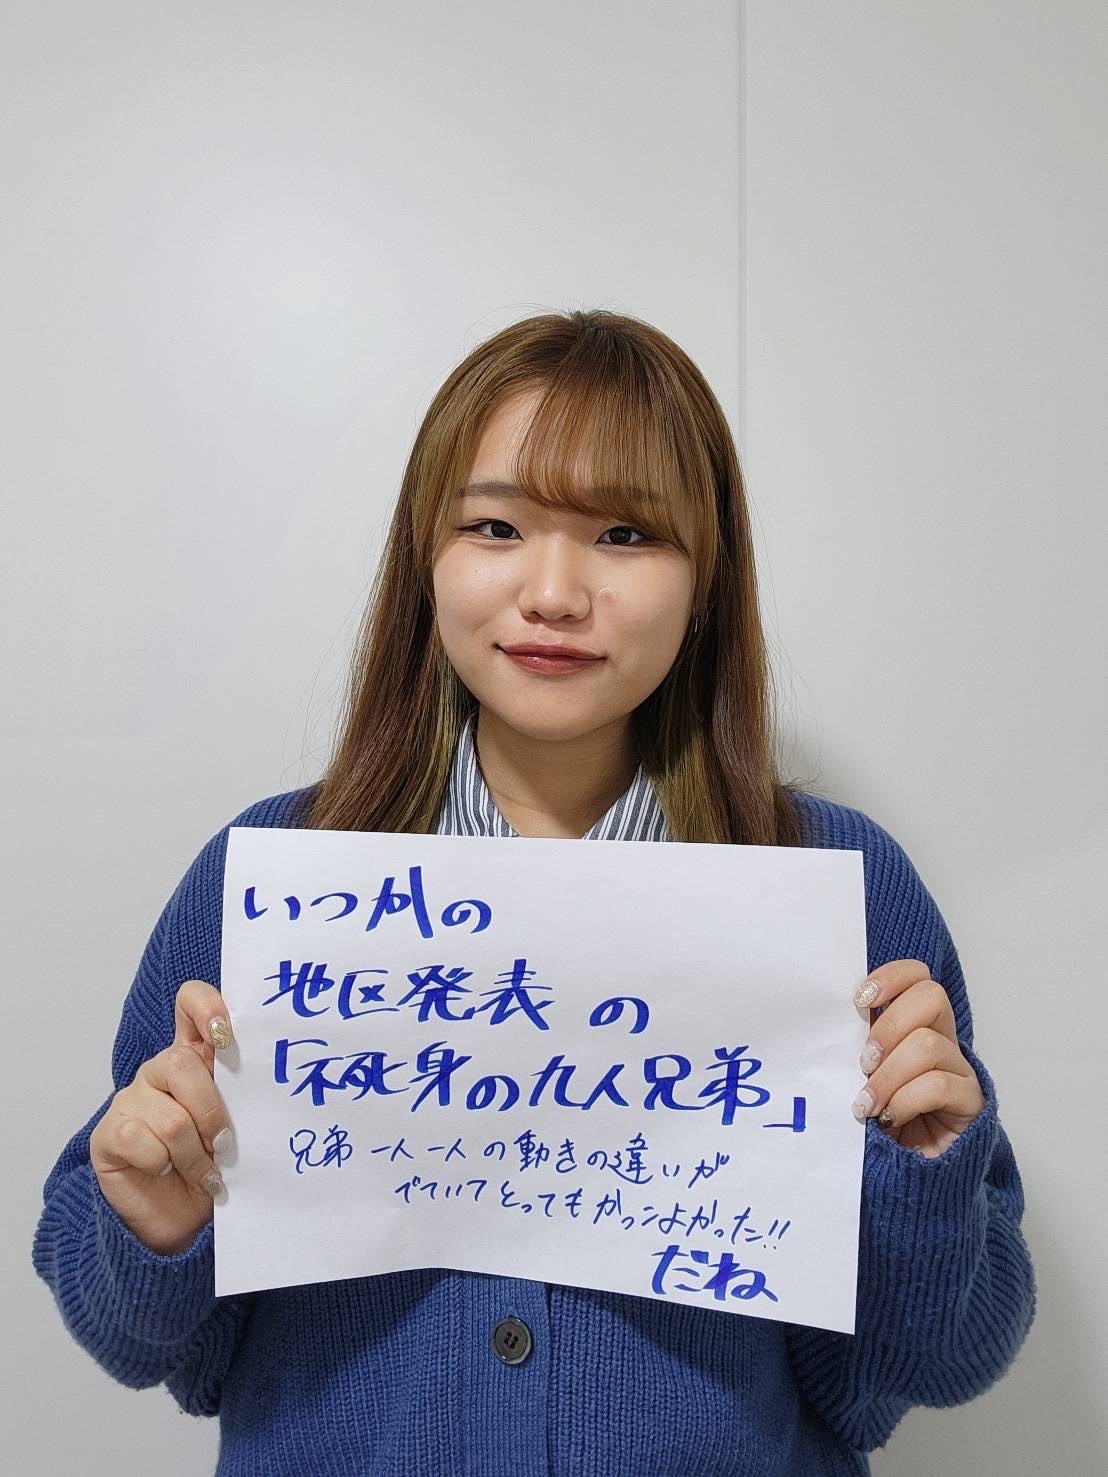 いつかの
地区発表の
「不死身の九人兄弟」
兄弟一人一人の動きの違いが
でていてとってもかっこよかった!!
だね